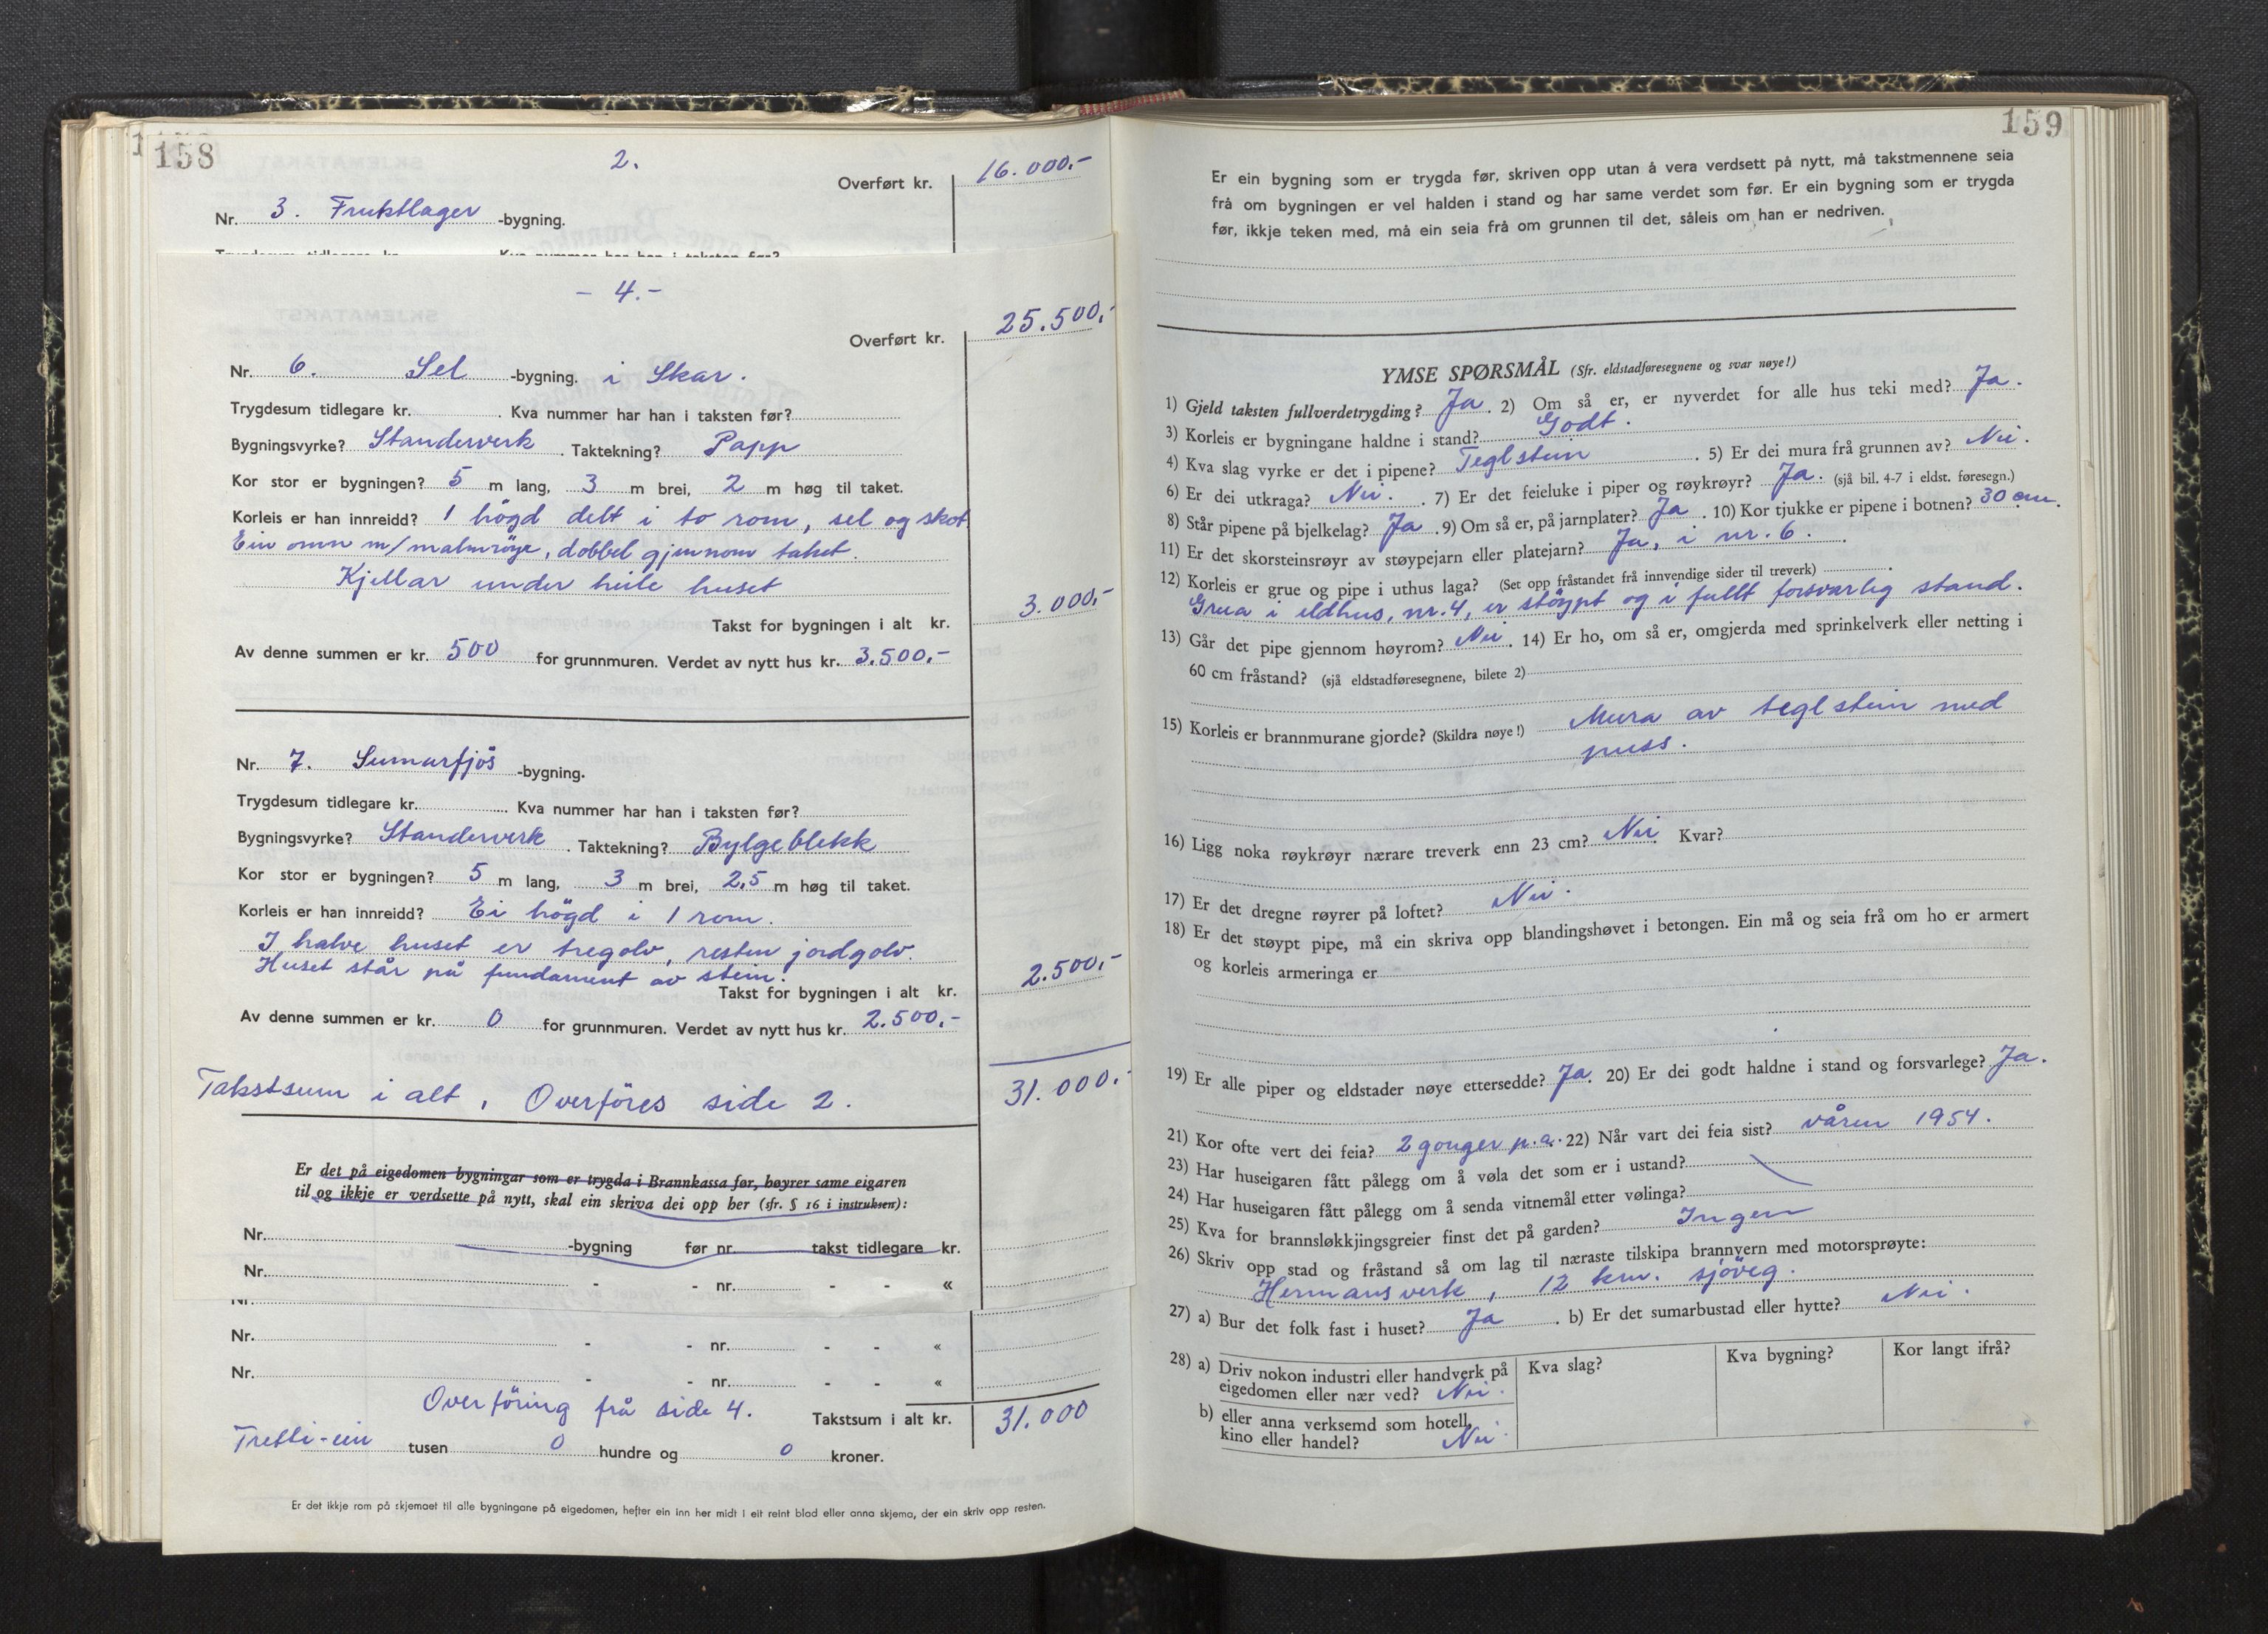 158
2.
Overført kr. 16.000.-
Nr. 3. Fruktlager -bygning.
- 4.-
Overført kr. 25.500,-
Nr. 6. Sel -bygning. i Skar.
Trygdesum tidlegare kr. . Kva nummer har han i taksten før?
Bygningsvyrke? Standerverk . Taktekning? Papp
Kor stor er bygningen? 5 m lang, 3 m brei, 2 m høg til taket.
Korleis er han innreidd? 1 högd delt i to rom, sel og skot
Ein omn m/malmröyr, dobbel gjennom taket.
Kjellar under heile huset
Takst for bygningen i alt kr. 3.000,-
Av denne summen er kr. 500 for grunnmuren. Verdet av nytt hus kr. 3.500.-
Nr. 7. Sumarfjös -bygning.
Trygdesum tidlegare kr. Kva nummer har han i taksten før?
Bygningsvyrke? Standerverk . Taktekning? Bylgeblekk
Kor stor er bygningen? 5 m lang, 3 m brei, 2,5 m høg til taket.
Korleis er han innreidd? Ei högd i 1 rom.
I halve huset er tregolv, resten jordgolv.
Huset står på fundament av stein.
Takst for bygningen i alt kr. 2.500,-
Av denne summen er kr. 0 for grunnmuren. Verdet av nytt hus kr. 2.500,-
Takstsum i alt, Overföres side 2. 31.000.-
Er det på eigedomen bygningar som er trygda i Brannkassa før, høyrer same eigaren
til og ikkje er verdsette på nytt, skal ein skriva dei opp her (sfr. § 16 i instruksen):
Nr. -bygning før nr. takst tidlegare kr.
Nr. - - nr. - - «
Nr. - - nr. - - «
Nr. - - nr. - - «
Overföring frå side 4. Takstsum i alt kr. 31.000
Tretti-ein tusen 0 hundre og 0 kroner.
Er det ikkje rom på skjemaet til alle bygningane på eigedomen, hefter ein inn her midt i eit reint blad eller anna skjema, der ein skriv opp resten.
159
Er ein bygning som er trygda før, skriven opp utan å vera verdsett på nytt, må takstmennene seia
frå om bygningen er vel halden i stand og har same verdet som før. Er ein bygning som er trygda
før, ikkje teken med, må ein seia frå om grunnen til det, såleis om han er nedriven.
YMSE SPØRSMÅL (Sfr. eldstadføresegnene og svar nøye!)
1) Gjeld taksten fullverdetrygding? Ja . 2) Om så er, er nyverdet for alle hus teki med? Ja.
3) Korleis er bygningane haldne i stand? Godt.
4) Kva slag vyrke er det i pipene? Teglstein . 5) Er dei mura frå grunnen av? Nei.
6) Er dei utkraga? Nei. . 7) Er det feieluke i piper og røykrøyr? Ja. (sjå bil. 4-7 i eldst. føresegn.)
8) Står pipene på bjelkelag? Ja . 9) Om så er, på jarnplater? Ja . 10) Kor tjukke er pipene i botnen? 30 cm.
11) Er det skorsteinsrøyr av støypejarn eller platejarn? Ja, i nr. 6.
12) Korleis er grue og pipe i uthus laga? (Set opp fråstandet frå innvendige sider til treverk)
Grua i eldhus, nr. 4, er stöypt og i fullt forsvarleg stand.
13) Går det pipe gjennom høyrom? Nei . 14) Er ho, om så er, omgjerda med sprinkelverk eller netting i
60 cm fråstand? (sjå eldstadføresegnene, bilete 2)
15) Korleis er brannmurane gjorde? (Skildra nøye!) Mura av teglstein med
puss.
16) Ligg noka røykrøyr nærare treverk enn 23 cm? Nei. Kvar?
17) Er det dregne røyrer på loftet? Nei.
18) Er det støypt pipe, må ein skriva opp blandingshøvet i betongen. Ein må og seia frå om ho er armert
og korleis armeringa er
19) Er alle piper og eldstader nøye ettersedde? Ja. 20) Er dei godt haldne i stand og forsvarlege? Ja.
21) Kor ofte vert dei feia? 2 gonger p.a. 22) Når vart dei feia sist? våren 1954.
23) Har huseigaren fått pålegg om å vøla det som er i ustand?
24) Har huseigaren fått pålegg om å senda vitnemål etter vølinga?
25) Kva for brannsløkkjingsgreier finst det på garden? Ingen
26) Skriv opp stad og fråstand så om lag til næraste tilskipa brannvern med motorsprøyte:
Hermansverk, 12 km. sjöveg.
27) a) Bur det folk fast i huset? Ja . b) Er det sumarbustad eller hytte? Nei.
28) a) Driv nokon industri eller handverk på Kva slag? Kva bygning? Kor langt ifrå?
eigedomen eller nær ved? Nei.
b) eller anna verksemd som hotell,
kino eller handel? Nei